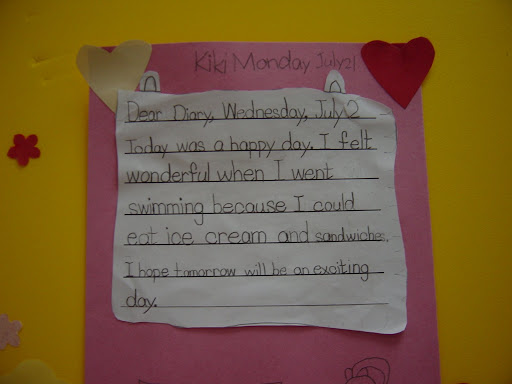 Kiki Monday July 21
Dear Diary, Wednesday, July 2
Today was a happy day. I felt
wonderful when I went
swimming because I could
eat ice cream and sandwiches.
I hope tomorrow will be an exciting
day.